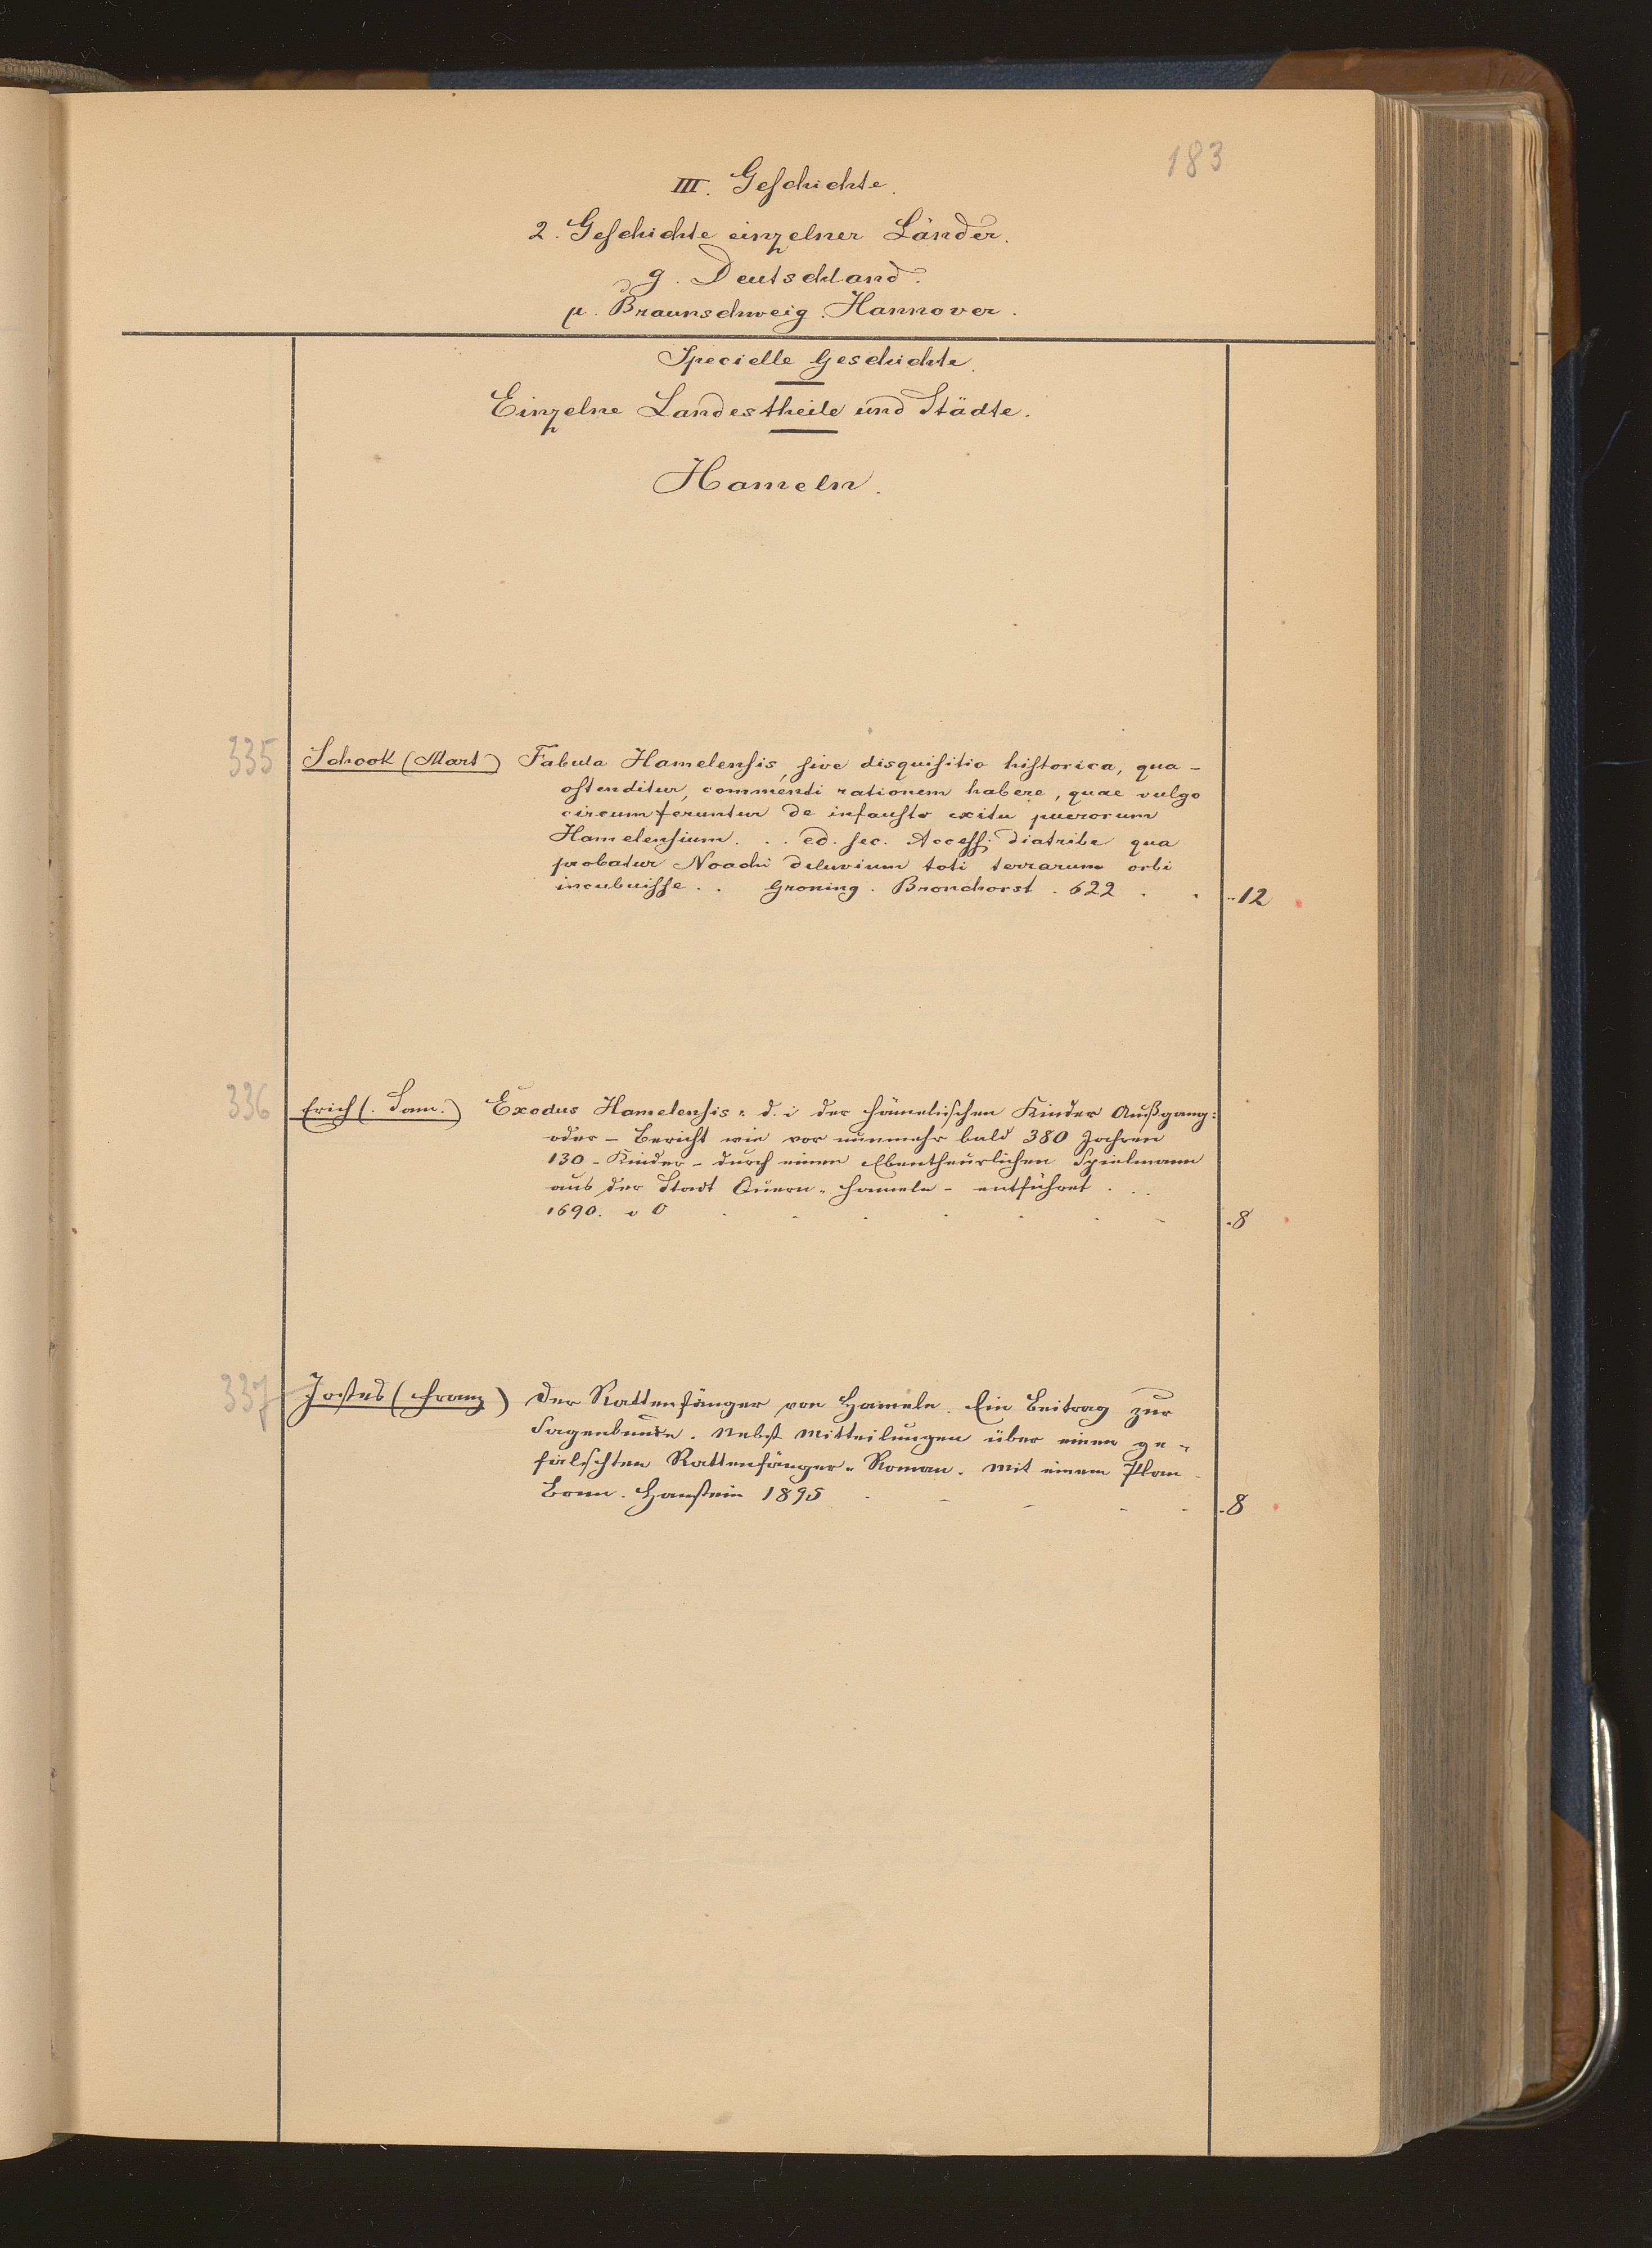 183
III. Geschichte.
2. Geschichte einzelner Länder.
g. Deutschland.
μ. Braunschweig. Hannover.
Specielle Geschichte.
Einzelne Landestheile und Städte.
Hameln.
335 Schook (Mart) Fabula Hamelensis, sive disquisitio historica, qua -
ostenditur, commenti rationem habere, quae vulgo
circumferuntur de infausto exitu puerorum
Hamelensium. . . ed. sec. Access. diatribe qua
probatur Noachi deluvium toti terrarum orbi
incubuisse. . Groning. Bronchorst. 622 . . -12
336 Erich (. Sam.) Exodus Hamelensis. d. i der Hämelischen Kinder Außgang:
oder - Bericht wie vor nunmehr bald 380 Jahren
130 - Kinder - durch einen Ebentheurlichen Spielmann
aus der Stadt Quern-Hameln - entführet . . .
1690. -8
337 Jostes (Franz) Der Rattenfänger von Hameln. Ein Beitrag zur
Sagenkunde. Nebst Mitteilungen über einen ge-
fälschten Rattenfänger-Roman. Mit einem Plan
Bonn. Hanstein 1895 -8